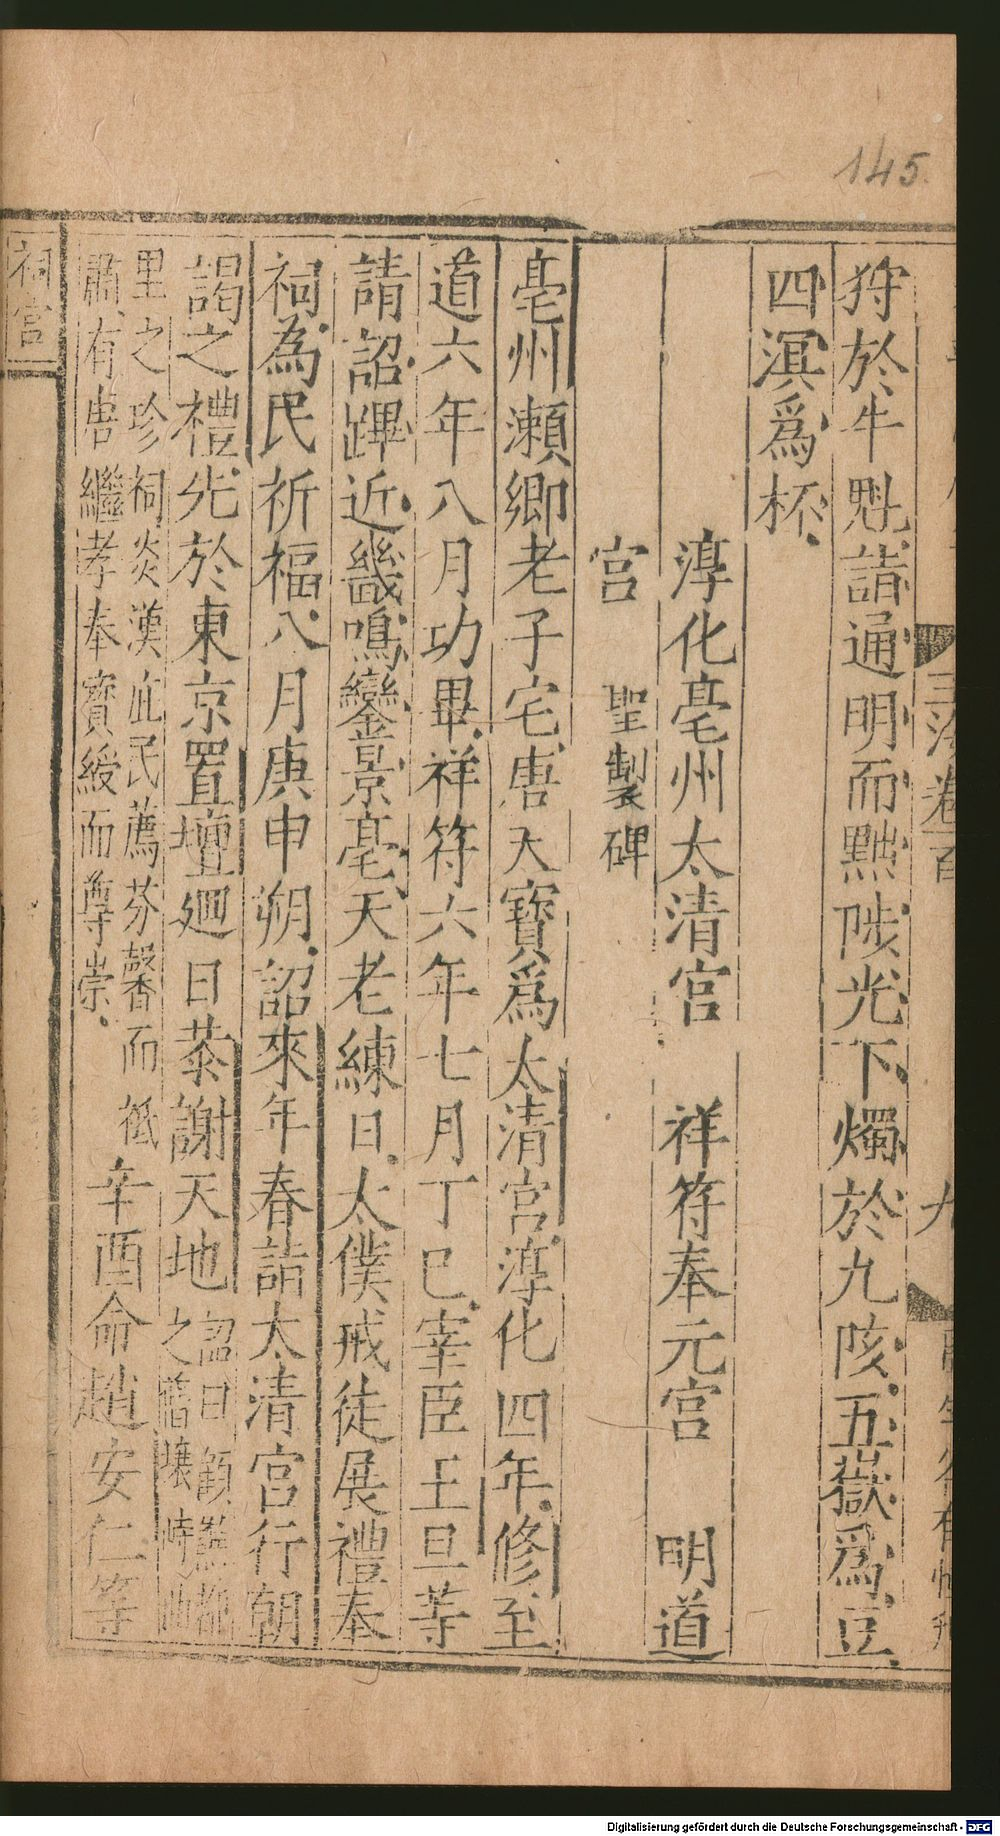 145
狩於牛魁請通明而黜陟光下燭於九陔五嶽爲豆
四溟爲杯
淳化亳州太清宮 祥符奉元宮 明道
宮 聖製碑
亳州瀨卿老子宅唐天寶爲太清宮淳化四年修至
道六年八月功畢祥符六年七月丁巳宰臣王旦等
請詔蹕近畿鳴鑾景亳天老練日太僕戒徒展禮奉
祠為民祈福八月庚申朔詔來年春詣太清宮行朝
謁之禮先於東京置壇廻日恭謝天地詔曰顧
之舊壤
里之珍祠炎漢庇民薦芬馨而祗
肅有唐繼孝奉寶綬而尊崇辛酉命趙安仁等
祠宮
玉海卷百
九
Digitalisierung gefördert durch die Deutsche Forschungsgemeinschaft - DFG